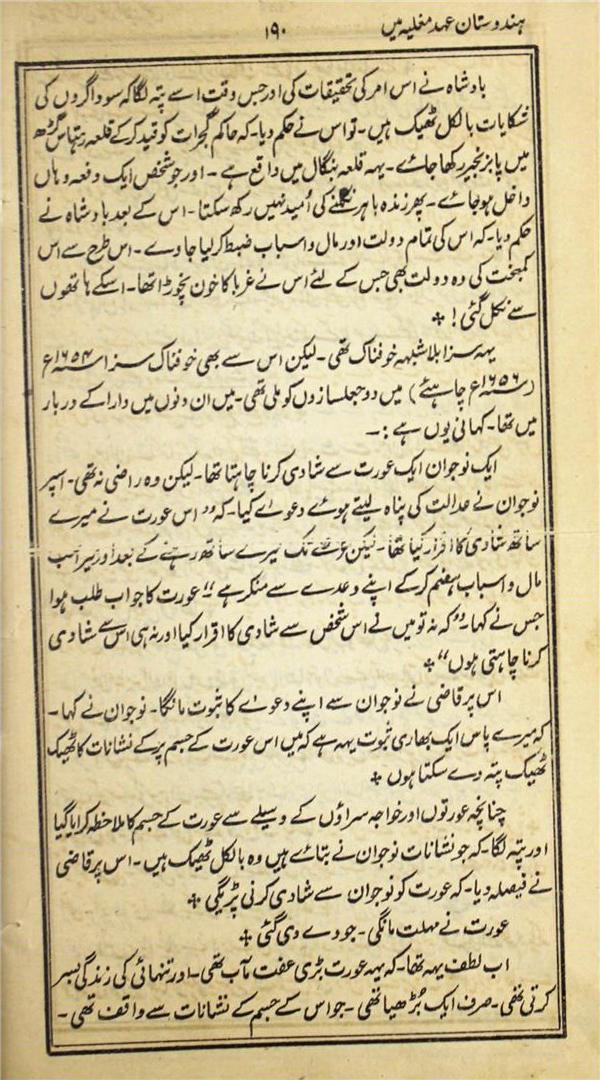 ہندوستان عہد مغلیہ میں
۱۹۰
بادشاہ نے اس امر کی تحقیقات کی اور جس وقت اسے پتہ لگا کہ سوداگروں کی
شکایات بالکل ٹھیک ہیں۔ تو اس نے حکم دیا۔ کہ حاکم گجرات کو قید کر کے قلعہ رہتاس گڑھ
میں پابزنجیر رکھا جائے۔ یہہ قلعہ بنگال میں واقع ہے۔ اور جو شخص ایک دفعہ وہاں
داخل ہو جائے۔ پھر زندہ باہر نکلنے کی اُمید نہیں رکھ سکتا۔ اس کے بعد بادشاہ نے
حکم دیا۔ کہ اس کی تمام دولت اور مال و اسباب ضبط کر لیا جاوے۔ اس طرح سے اس
کمبخت کی وہ دولت بھی جس کے لئے اس نے غربا کا خون نچوڑا تھا۔ اسکے ہاتھوں
سے نکل گئی! ٭
یہہ سزا بلا شبہہ خوفناک تھی۔ لیکن اس سے بھی خوفناک سزا سنہ ۱۶۵۴ء
(سنہ ۱۶۵۶ء چاہیئے) میں دو جعلسازوں کو ملی تھی۔ میں ان دنوں میں دارا کے دربار
میں تھا۔ کہانی یوں ہے:۔
ایک نوجوان ایک عورت سے شادی کرنا چاہتا تھا۔ لیکن وہ راضی نہ تھی۔ اسپر
نوجوان نے عدالت کی پناہ لیتے ہوئے دعوٰے کیا۔ کہ ’’اس عورت نے میرے
ساتھ شادی کا اقرار کیا تھا۔ لیکن عرصے تک میرے ساتھ رہنے کے بعد اور میرا سب
مال و اسباب ہضم کر کے اپنے وعدے سے منکر ہے‘‘ عورت کا جواب طلب ہوا
جس نے کہا۔ ’’کہ نہ تو میں نے اس شخص سے شادی کا اقرار کیا اور نہ ہی اس سے شادی
کرنا چاہتی ہوں‘‘ ٭
اس پر قاضی نے نوجوان سے اپنے دعوٰے کا ثبوت مانگا۔ نوجوان نے کہا۔
کہ میرے پاس ایک بھاری ثبوت یہہ ہے کہ میں اس عورت کے جسم پر کے نشانات کا ٹھیک
ٹھیک پتہ دے سکتا ہوں ٭
چنانچہ عورتوں اور خواجہ سراؤں کے وسیلے سے عورت کے جسم کا ملاحظہ کرایا گیا
اور پتہ لگا۔ کہ جو نشانات نوجوان نے بتائے ہیں وہ بالکل ٹھیک ہیں۔ اس پر قاضی
نے فیصلہ دیا۔ کہ عورت کو نوجوان سے شادی کرنی پڑیگی ٭
عورت نے مہلت مانگی۔ جو دے دی گئی ٭
اب لطف یہہ تھا۔ کہ یہہ عورت بڑی عفت مآب تھی۔ اور تنہائی کی زندگی بسر
کرتی تھی۔ صرف ایک بُڑھیا تھی۔ جو اس کے جسم کے نشانات سے واقف تھی۔